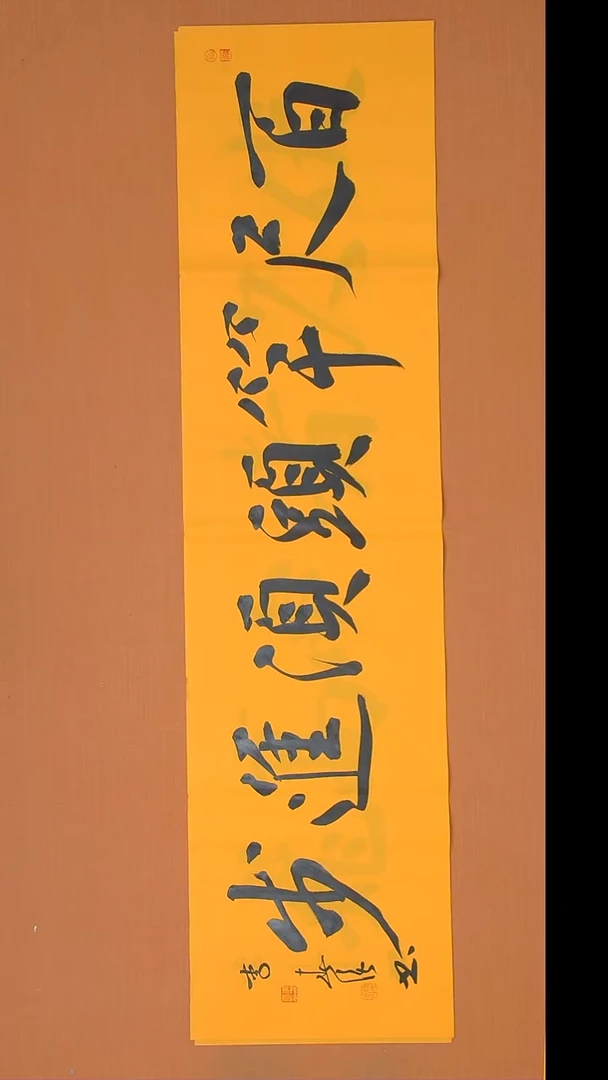 百尺竿頭須進步